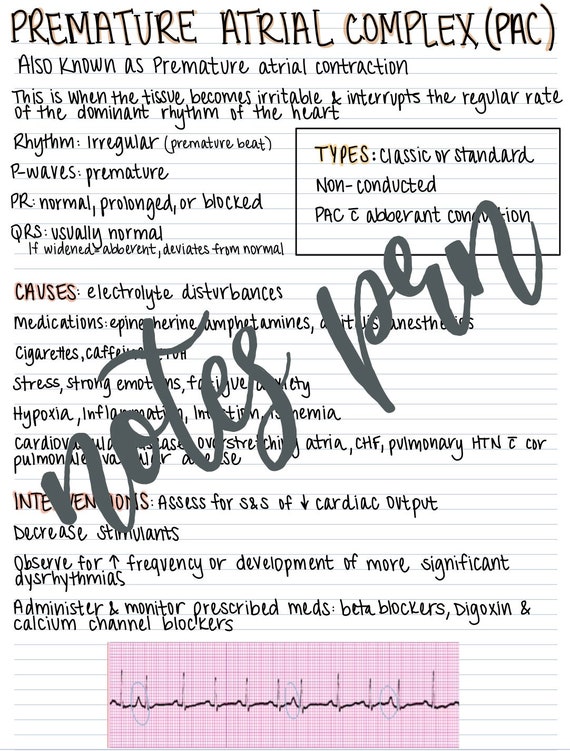 PREMATURE ATRIAL COMPLEX (PAC)
Also Known as Premature atrial contraction
This is when the tissue becomes irritable & interrupts the regular rate
of the dominant rhythm of the heart
Rhythm: Irregular (premature beat)
P-waves: premature
PR: normal, prolonged, or blocked
QRS: usually normal
If widened=abberent, deviates from normal
TYPES: Classic or standard
Non-conducted
PAC c̄ abberant conduction
CAUSES: electrolyte disturbances
Medications: epinepherine, amphetamines, digitalis, anesthetics
Cigarettes, caffeine, ETOH
Stress, strong emotions, fatigue, anxiety
Hypoxia, Inflammation, Infection, Ischemia
Cardiovascular disease: overstretching atria, CHF, pulmonary HTN c̄ cor
pulmonale, valvular disease
INTERVENTIONS: Assess for S&S of ↓ cardiac output
Decrease stimulants
Observe for ↑ frequency or development of more significant
dysrhythmias
Administer & monitor prescribed meds: beta blockers, Digoxin &
calcium channel blockers
notes prn